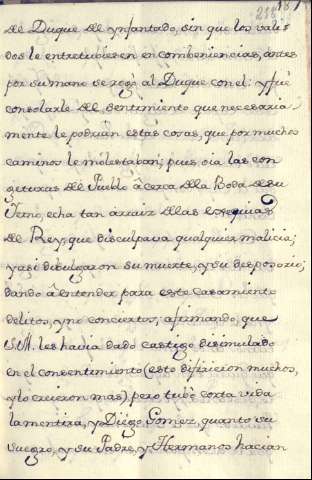 218 181
del Duque del ynfantado, sin que los vali-
dos le entretubiesen en combeniencias, antes
por su mano se rogò al Duque con el: y fuè
consolarle del sentimiento que necesaria-
mente le podrian estas cosas, que por muchos
caminos le molestaban; pues oia las con
geturas del Pueblo àcerca della Boda de su
Yerno, echa tan àrraiz de las exequias
del Rey, que disculpava qualquier malicia;
y asi dibulgaron su muerte, y su desposorio;
dando à entender para este Casamiento
delitos, y no conciertos; afirmando, que
S.M. les havia dado castigo disimulado
en el consentimiento (esto dijeron muchos,
y lo creieron mas) pero tubo corta vida
la mentira, y Diego Gomez, quanto su
suegro, y su Padre, y Hermanos hacian